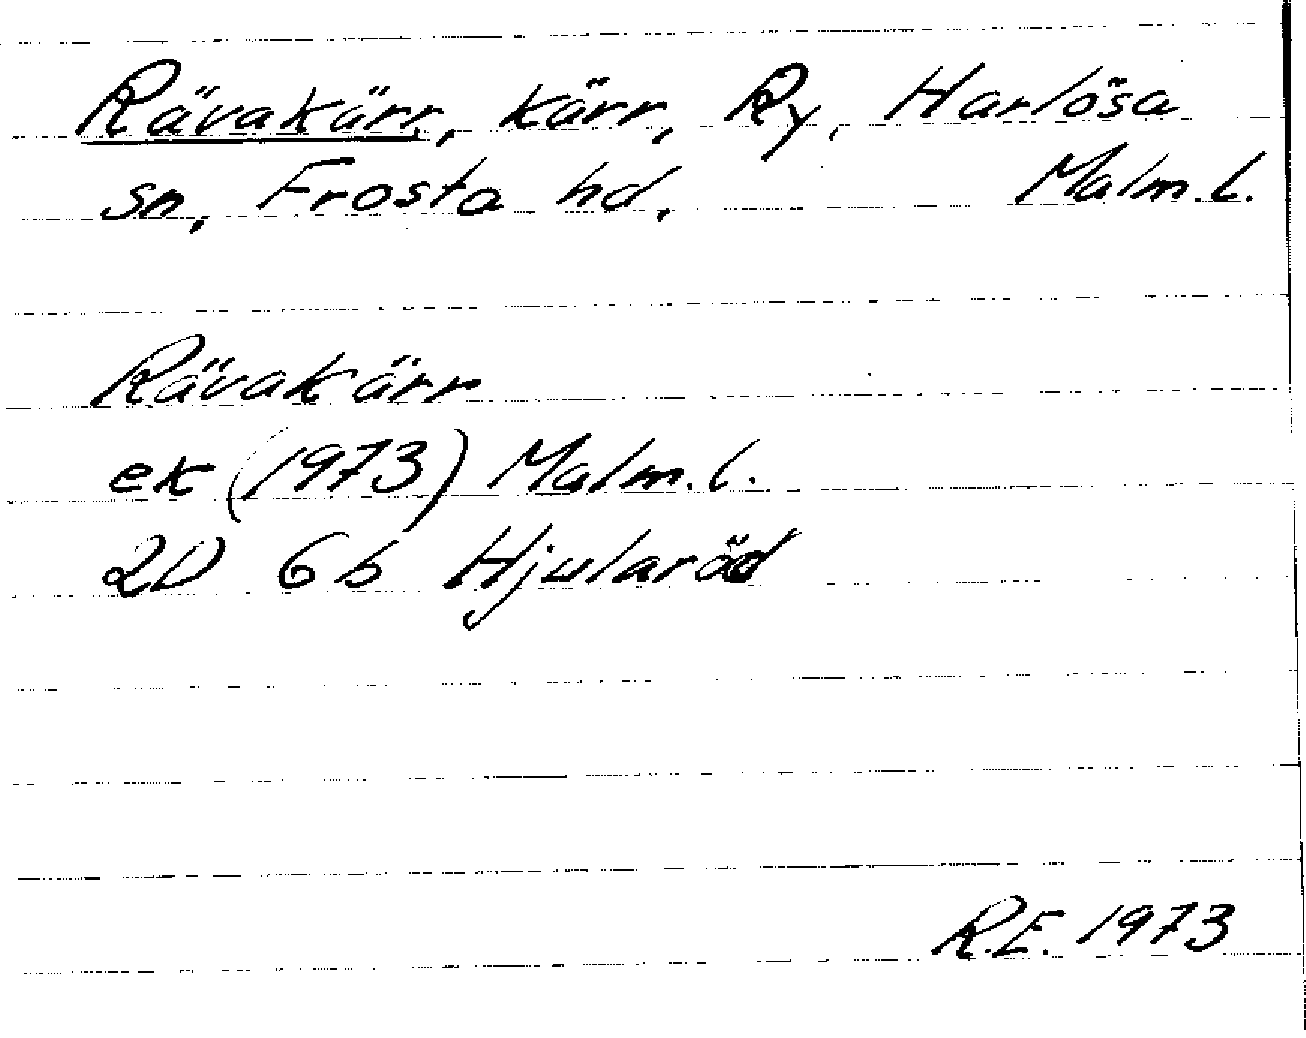 Rävakärr, kärr, Ry, Harlösa
sn, Frosta hd. Malm.l.
Rävakärr
ek (1973) Malm.l.
2D 6b Hjularöd
R.E. 1973